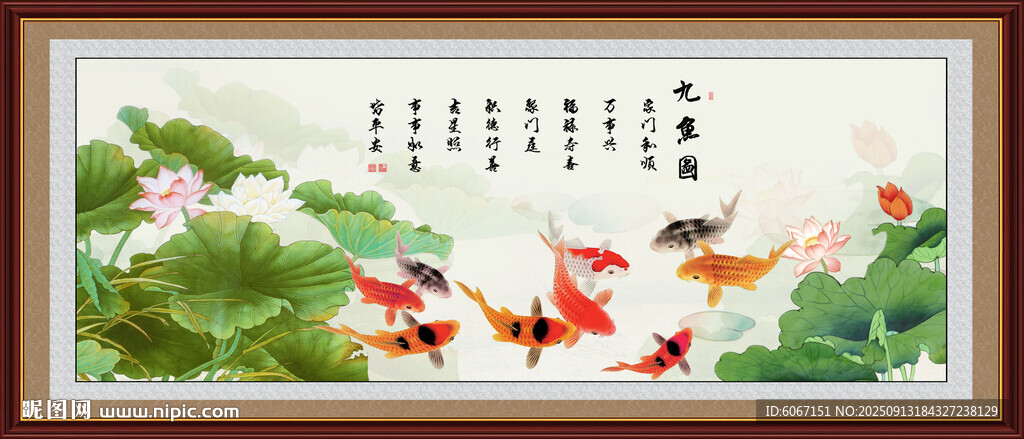 九魚圖
家门和顺
万事兴
福禄寿喜
聚门庭
积德行善
吉星照
事事如意
平安
昵图网 www.nipic.com
ID:6067151 NO:20250913184327238129